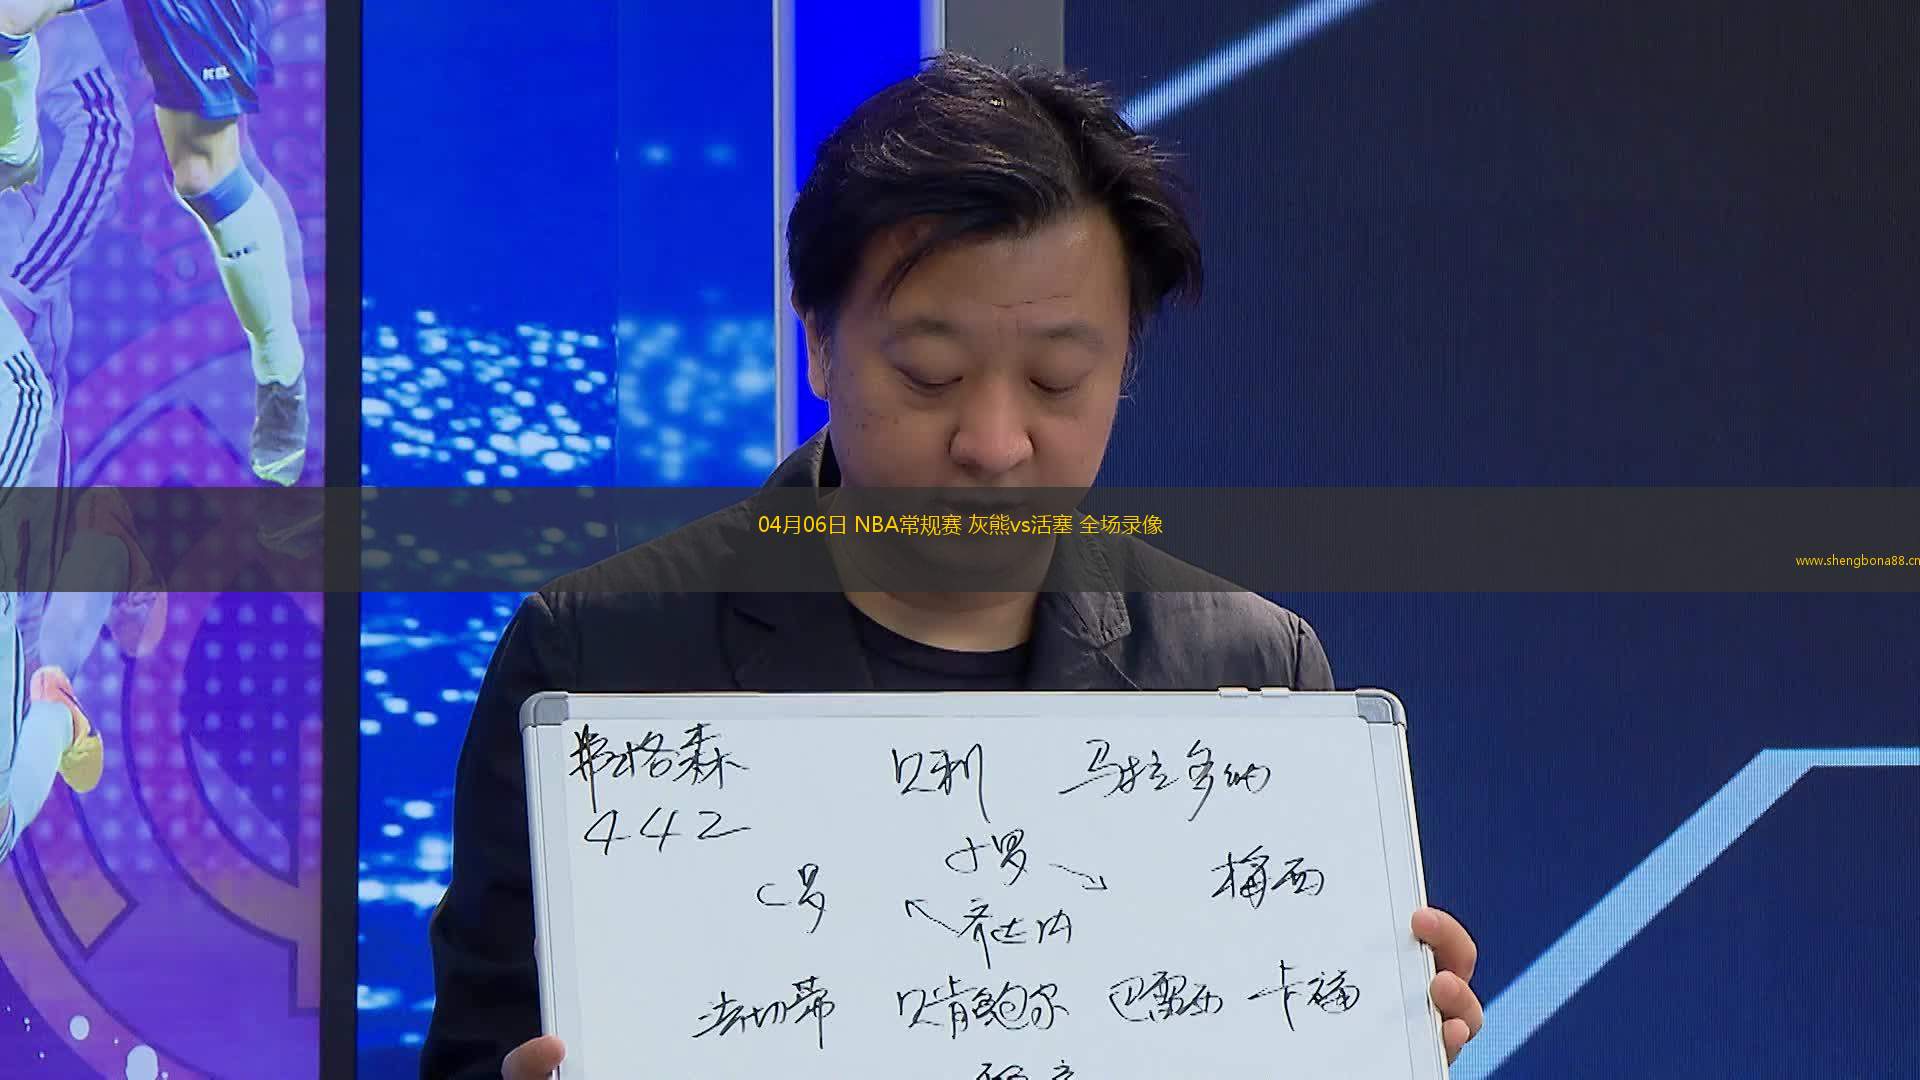 04月06日 NBA常规赛 灰熊vs活塞 全场录像
www.shengbona88.cn
弗格森 贝利 马拉多纳
442
小罗
C罗 梅西
齐达内
法切蒂 贝肯鲍尔 巴雷西 卡福